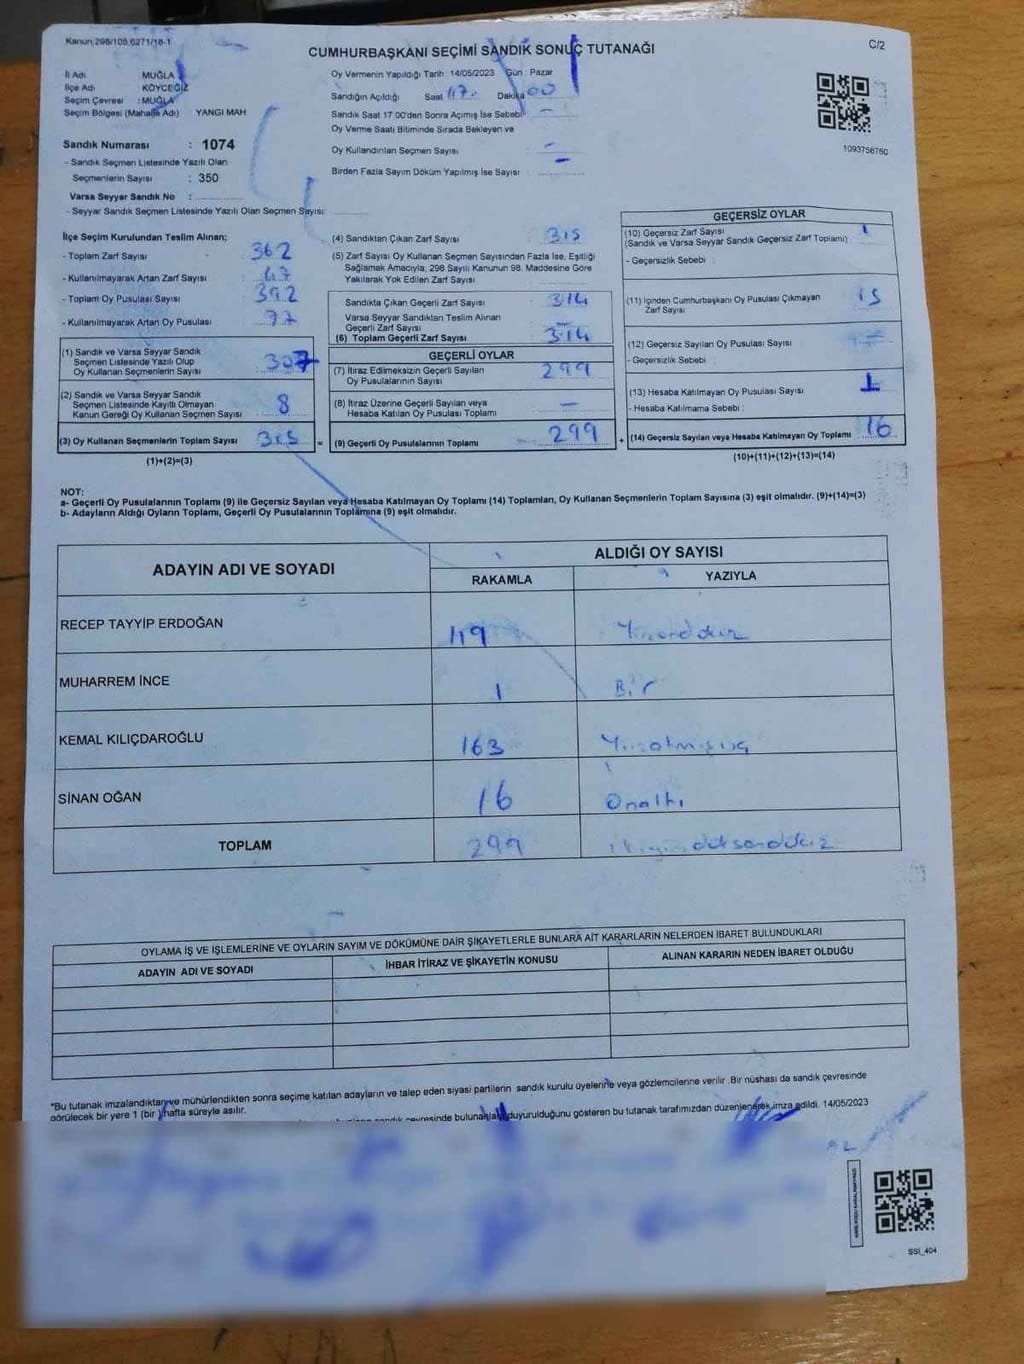 Kanun 298/105,6271/18-1
C/2
CUMHURBAŞKANI SEÇİMİ SANDIK SONUÇ TUTANAĞI
İl Adı MUĞLA
İlçe Adı KÖYCEĞİZ
Seçim Çevresi : MUĞLA
Seçim Bölgesi (Mahalle Adı) YANGI MAH
Sandık Numarası : 1074
- Sandık Seçmen Listesinde Yazılı Olan
Seçmenlerin Sayısı : 350
Varsa Seyyar Sandık No :
- Seyyar Sandık Seçmen Listesinde Yazılı Olan Seçmen Sayısı:
Oy Vermenin Yapıldığı Tarih :14/05/2023 Gün : Pazar
Sandığın Açıldığı Saat 17 Dakika 00
Sandık Saat 17.00'den Sonra Açımış İse Sebebi -
Oy Verme Saati Bitiminde Sırada Bekleyen ve
Oy Kullandırılan Seçmen Sayısı -
Birden Fazla Sayım Döküm Yapılmış İse Sayısı -
1093758760
İlçe Seçim Kurulundan Teslim Alınan;
- Toplam Zarf Sayısı 362
- Kullanılmayarak Artan Zarf Sayısı 47
- Toplam Oy Pusulası Sayısı 392
- Kullanılmayarak Artan Oy Pusulası 77
(1) Sandık ve Varsa Seyyar Sandık
Seçmen Listesinde Yazılı Olup
Oy Kullanan Seçmenlerin Sayısı 307
(2) Sandık ve Varsa Seyyar Sandık
Seçmen Listesinde Kayıtlı Olmayan
Kanun Gereği Oy Kullanan Seçmen Sayısı 8
(3) Oy Kullanan Seçmenlerin Toplam Sayısı 315 =
(1)+(2)=(3)
(4) Sandıktan Çıkan Zarf Sayısı 315
(5) Zarf Sayısı Oy Kullanan Seçmen Sayısından Fazla İse, Eşitliği
Sağlamak Amacıyla; 298 Sayılı Kanunun 98. Maddesine Göre
Yakılarak Yok Edilen Zarf Sayısı
Sandıkta Çıkan Geçerli Zarf Sayısı 314
Varsa Seyyar Sandıktan Teslim Alınan
Geçerli Zarf Sayısı -
(6) Toplam Geçerli Zarf Sayısı 314
GEÇERLİ OYLAR
(7) İtiraz Edilmeksizin Geçerli Sayılan
Oy Pusulalarının Sayısı 299
(8) İtiraz Üzerine Geçerli Sayılan veya
Hesaba Katılan Oy Pusulası Toplamı -
(9) Geçerli Oy Pusulalarının Toplamı 299 +
GEÇERSİZ OYLAR
(10) Geçersiz Zarf Sayısı 1
(Sandık ve Varsa Seyyar Sandık Geçersiz Zarf Toplamı)
- Geçersizlik Sebebi :
(11) İçinden Cumhurbaşkanı Oy Pusulası Çıkmayan
Zarf Sayısı 15
(12) Geçersiz Sayılan Oy Pusulası Sayısı -
- Geçersizlik Sebebi :
(13) Hesaba Katılmayan Oy Pusulası Sayısı
- Hesaba Katılmama Sebebi :
(14) Geçersiz Sayılan veya Hesaba Katılmayan Oy Toplamı 16
(10)+(11)+(12)+(13)=(14)
NOT:
a- Geçerli Oy Pusulalarının Toplamı (9) ile Geçersiz Sayılan veya Hesaba Katılmayan Oy Toplamı (14) Toplamları, Oy Kullanan Seçmenlerin Toplam Sayısına (3) eşit olmalıdır. (9)+(14)=(3)
b- Adayların Aldığı Oyların Toplamı, Geçerli Oy Pusulalarının Toplamına (9) eşit olmalıdır.
ADAYIN ADI VE SOYADI ALDIĞI OY SAYISI
RAKAMLA YAZIYLA
RECEP TAYYİP ERDOĞAN 119
MUHARREM İNCE 1 Bir
KEMAL KILIÇDAROĞLU 163 Yüzatmışüç
SİNAN OĞAN 16 Onaltı
TOPLAM 299
OYLAMA İŞ VE İŞLEMLERİNE VE OYLARIN SAYIM VE DÖKÜMÜNE DAİR ŞİKAYETLERLE BUNLARA AİT KARARLARIN NELERDEN İBARET BULUNDUKLARI
ADAYIN ADI VE SOYADI İHBAR İTİRAZ VE ŞİKAYETİN KONUSU ALINAN KARARIN NEDEN İBARET OLDUĞU
*Bu tutanak imzalandıktan ve mühürlendikten sonra seçime katılan adayların ve talep eden siyasi partilerin sandık kurulu üyelerine veya gözlemcilerine verilir .Bir nüshası da sandık çevresinde
görülecek bir yere 1 (bir) hafta süreyle asılır.
çevresinde bulunanlara duyurulduğunu gösteren bu tutanak tarafımızdan düzenlenerek imza edildi. 14/05/2023
SSI_404